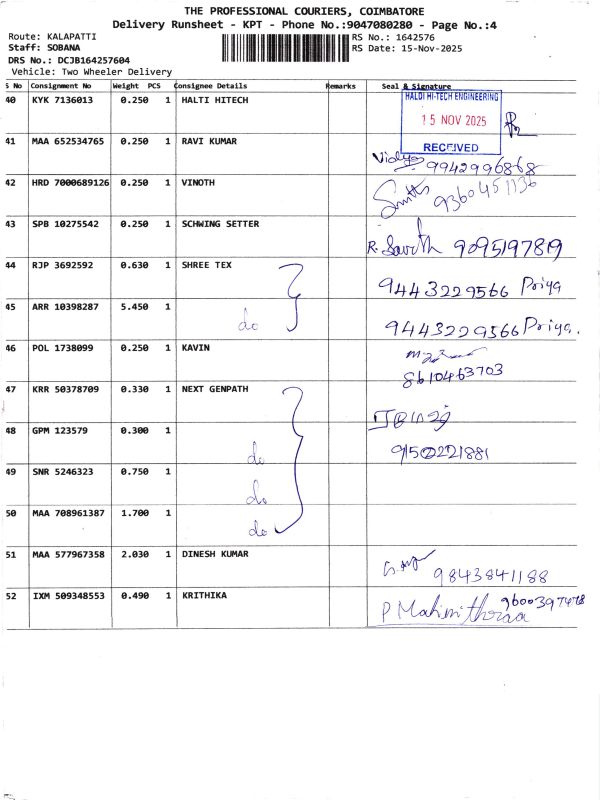 THE PROFESSIONAL COURIERS, COIMBATORE
Delivery Runsheet - KPT - Phone No.:9047080280 - Page No.:4
Route: KALAPATTI RS No.: 1642576
Staff: SOBANA RS Date: 15-Nov-2025
DRS No.: DCJB164257604
Vehicle: Two Wheeler Delivery
S No Consignment No Weight PCS Consignee Details Remarks Seal & Signature
40 KYK 7136013 0.250 1 HALTI HITECH HALDI HI-TECH ENGINEERING
15 NOV 2025
RECEIVED
41 MAA 652534765 0.250 1 RAVI KUMAR 9942996868
42 HRD 7000689126 0.250 1 VINOTH 9360451136
43 SPB 10275542 0.250 1 SCHWING SETTER R. 9095197819
44 RJP 3692592 0.630 1 SHREE TEX 9443229566 Priya
45 ARR 10398287 5.450 1 do 9443229566 Priya.
46 POL 1738099 0.250 1 KAVIN
8610463703
47 KRR 50378709 0.330 1 NEXT GENPATH
48 GPM 123579 0.300 1 do 91502221881
49 SNR 5246323 0.750 1 do
50 MAA 708961387 1.700 1 do
51 MAA 577967358 2.030 1 DINESH KUMAR 9843841188
52 IXM 509348553 0.490 1 KRITHIKA 9600397478